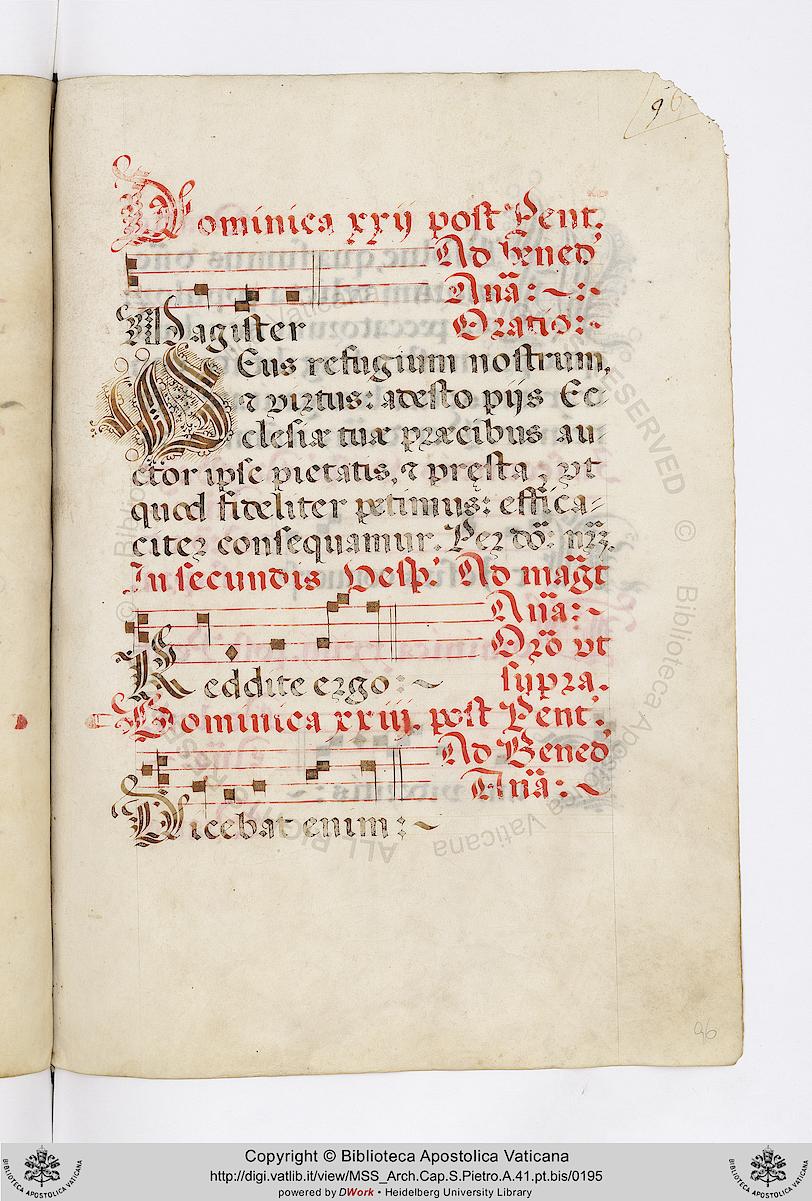 96
Dominica xxij post Pent.
Ad Bened'
Anã:~:~
Magister Oratio:~
Deus refugium nostrum,
⁊ virtus: adesto pijs Ec
clesiæ tuæ præcibus au-
ctor ipse pietatis, ⁊ pręsta, vt
quod fideliter petimus: effica-
citer consequamur. Per dõ: nr̃:
In secundis Vesp.' Ad mag̃t
Anã:~
Orõ vt
Reddite ergo:~ supra.
Dominica xxiij. post Pent.'
Ad Bened'
Anã:~
Dicebat enim:~
96
Copyright © Biblioteca Apostolica Vaticana
http://digi.vatlib.it/view/MSS_Arch.Cap.S.Pietro.A.41.pt.bis/0195
powered by DWork • Heidelberg University Library
BIBLIOTECA APOSTOLICA VATICANA
BIBLIOTECA APOSTOLICA VATICANA